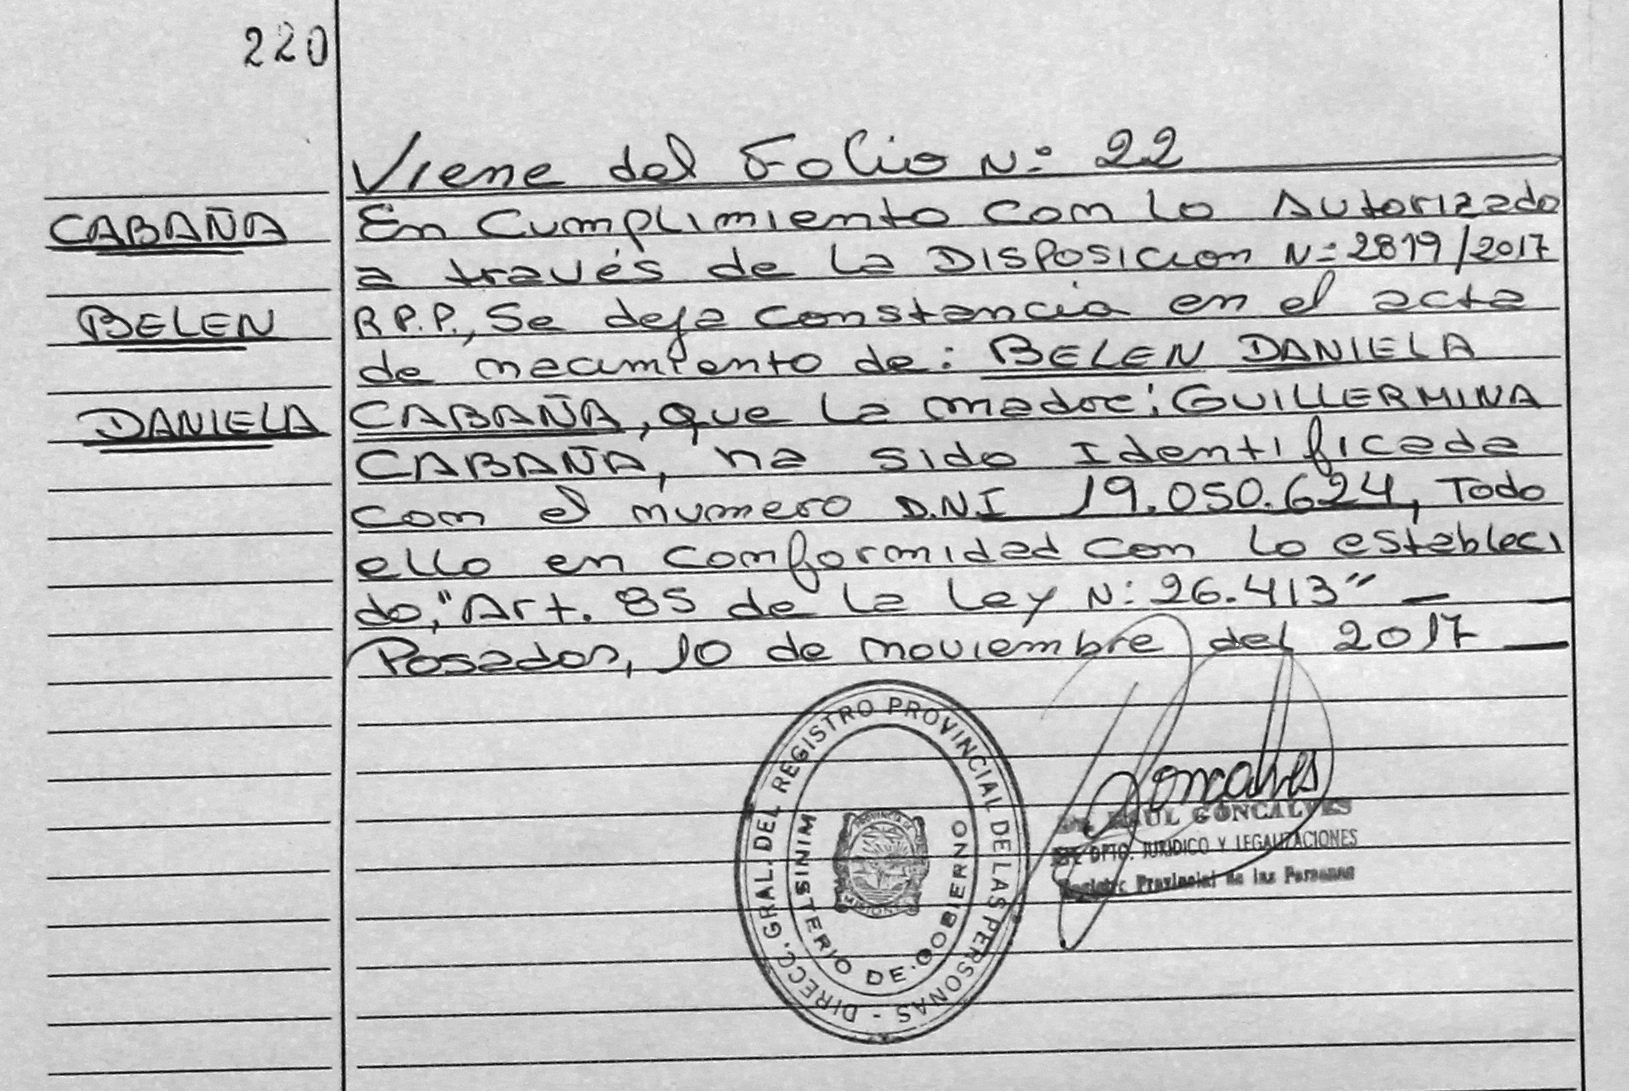 220
Viene del Folio N: 22
CABAÑA
BELEN
DANIELA
En Cumplimiento com lo Autorizado
a través de la DISPOSICION N: 2819/2017
R.P.P., Se deja constancia en el acta
de nacimiento de: BELEN DANIELA
CABAÑA, que la madre: GUILLERMINA
CABAÑA, ha sido Identificada
com el numero D.N.I 19.050.624, Todo
ello en comformidad con lo estableci
do, "Art. 85 de la Ley N: 26.413"
Posadas, 10 de noviembre del 2017
DIRECC. GRAL. DEL REGISTRO PROVINCIAL DE LAS PERSONAS -
MINISTERIO DE GOBIERNO
PROVINCIA
MISIONES
Goncalves
RAUL GONCALVES
DPTO. JURIDICO Y LEGALIZACIONES
Registro Provincial de las Personas